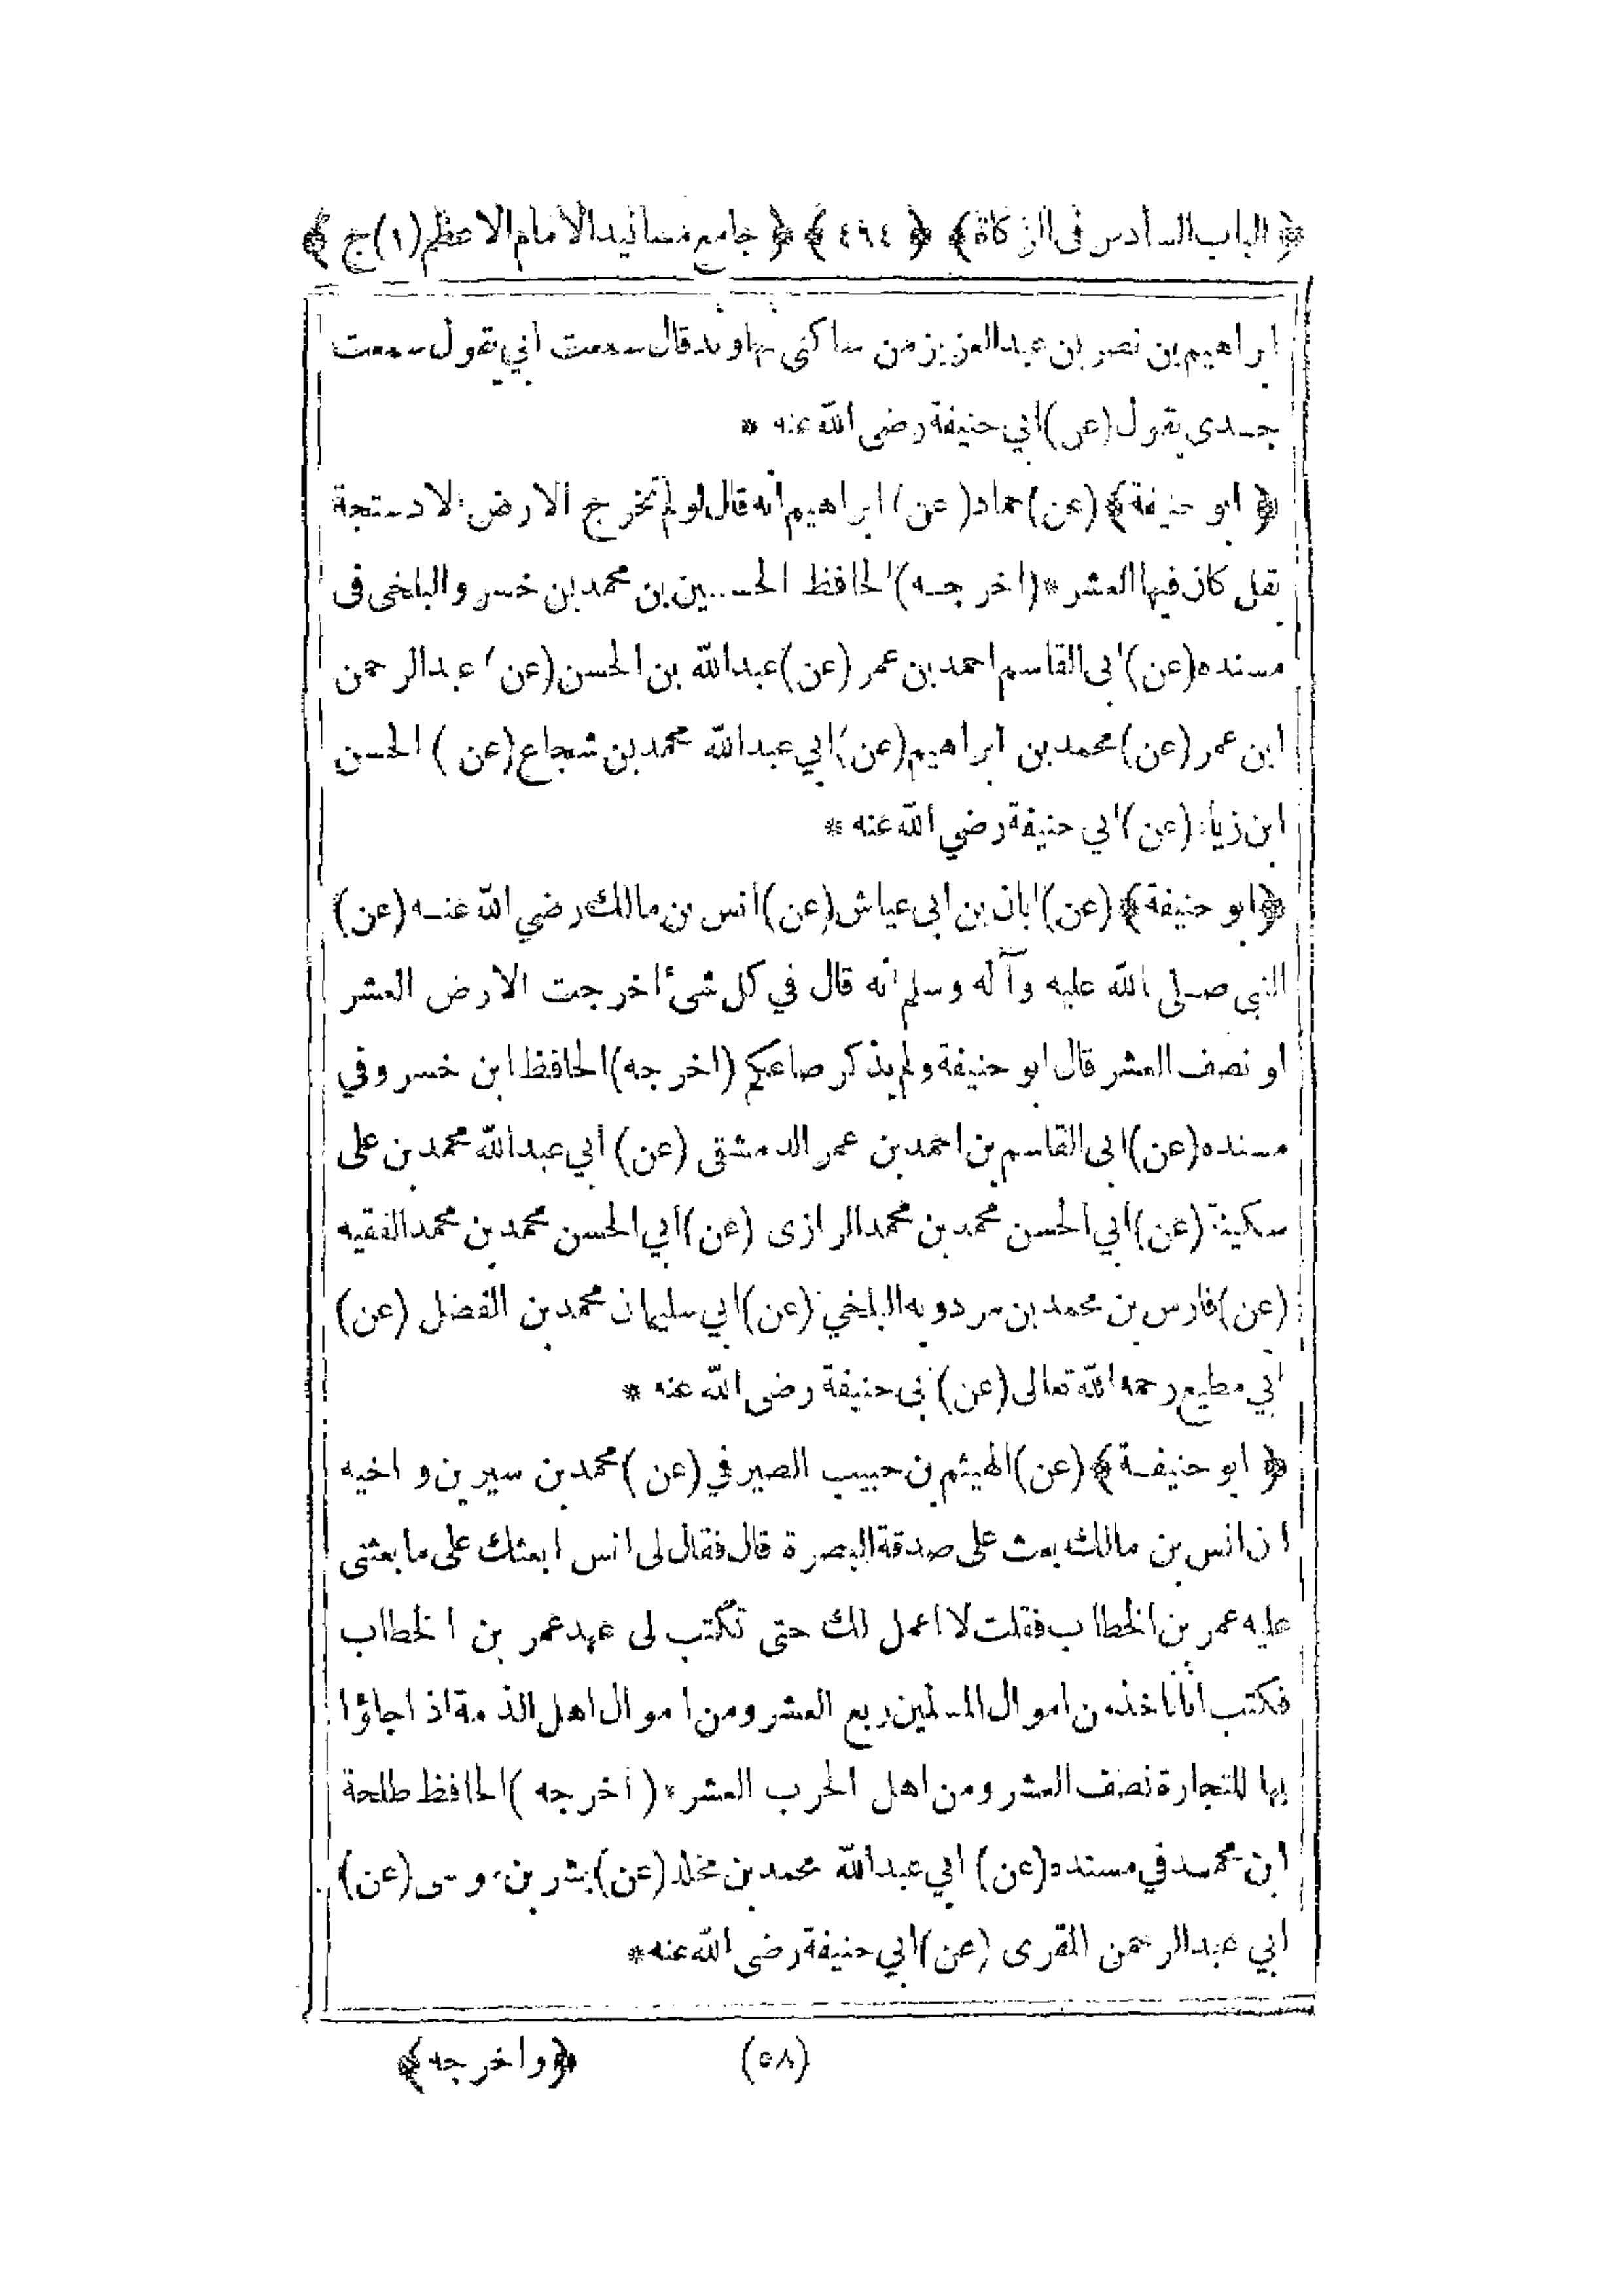 ﴿الباب السادس فى الزكاة﴾ ﴿٤٩٤﴾ ﴿جامع مسانيد الامام الاعظم(١)ج﴾
ابراهيم بن نصر بن عبد العزيز من ساكنى نهاوند قال سمعت ابي يقول سمعت
جدى يقول (عن) ابي حنيفة رضى الله عنه *
﴿ابو حنيفة﴾ (عن) حماد (عن) ابراهيم انه قال لو لم تخرج الارض الا دستجة
بقل كان فيها العشر * (اخرجه) الحافظ الحسين بن محمد بن خسرو البلخى فى
مسنده (عن) ابى القاسم احمد بن عمر (عن) عبد الله بن الحسن (عن) عبد الرحمن
ابن عمر (عن) محمد بن ابراهيم (عن) ابي عبد الله محمد بن شجاع (عن) الحسن
ابن زياد (عن) ابي حنيفة رضي الله عنه *
﴿ابو حنيفة﴾ (عن) ابان بن ابى عياش (عن) انس بن مالك رضي الله عنه (عن)
النبى صلى الله عليه وآله وسلم انه قال في كل شئ اخرجت الارض العشر
او نصف العشر قال ابو حنيفة ولم يذكر صاعكم (اخرجه) الحافظ ابن خسرو في
مسنده (عن) ابى القاسم بن احمد بن عمر الدمشقى (عن) ابي عبد الله محمد بن على
سكينة (عن) ابي الحسن محمد بن محمد الرازى (عن) ابي الحسن محمد بن محمد الفقيه
(عن) فارس بن محمد بن مردويه البلخي (عن) ابي سليمان محمد بن الفضل (عن)
ابي مطيع رحمه الله تعالى (عن) ابى حنيفة رضى الله عنه *
﴿ابو حنيفة﴾ (عن) الهيثم بن حبيب الصيرفي (عن) محمد بن سيرين و اخيه
ان انس بن مالك بعث على صدقة البصرة قال فقال لى انس ابعثك على ما بعثنى
عليه عمر بن الخطاب فقلت لا اعمل لك حتى تكتب لى عهد عمر بن الخطاب
فكتب ان تاخذ من اموال المسلمين ربع العشر ومن اموال اهل الذمة اذا جاؤا
بها للتجارة نصف العشر ومن اهل الحرب العشر * (اخرجه) الحافظ طلحة
ابن محمد في مسنده (عن) ابي عبد الله محمد بن مخلد (عن) بشر بن موسى (عن)
ابي عبد الرحمن المقرى (عن) ابي حنيفة رضى الله عنه *
(٥٨) ﴿واخرجه﴾